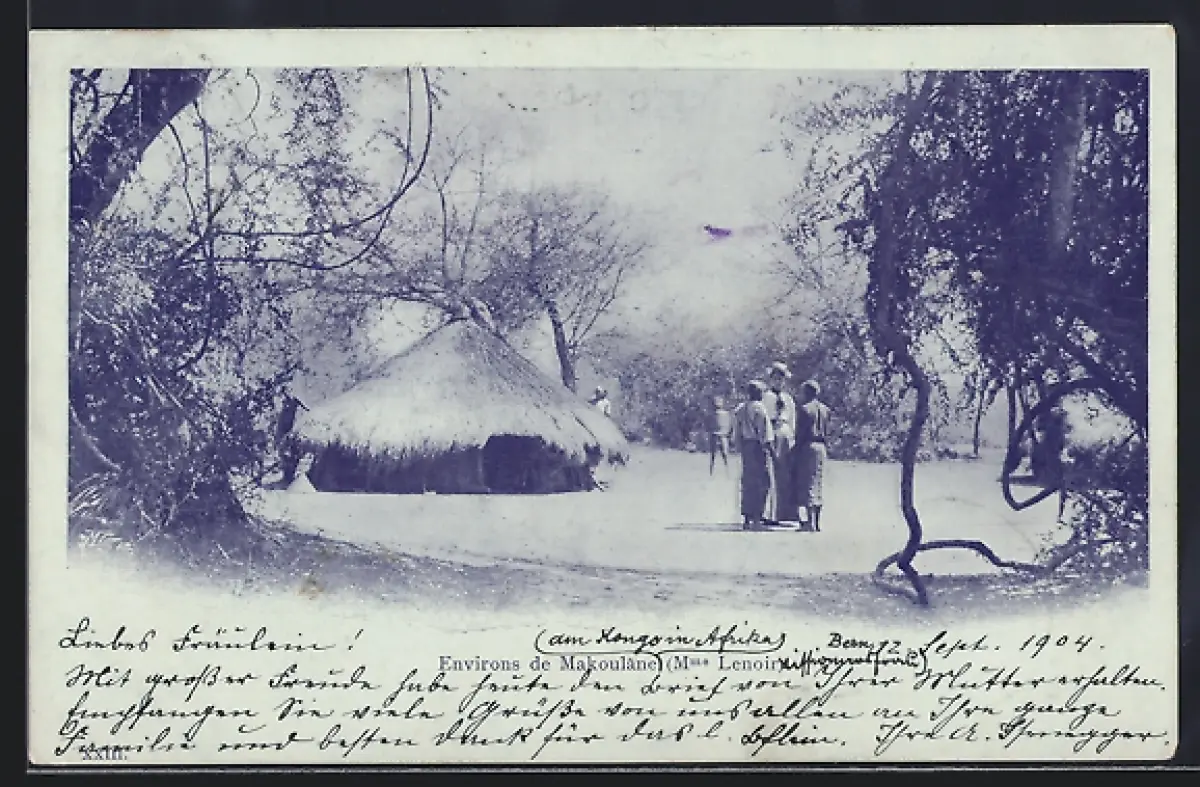 Liebes Fräulein! (am Kongo in Afrika) Bern, 12. Sept. 1904.
Environs de Makoulâne (Mme Lenoir) Missionarsfrau)
Mit großer Freude habe heute den Brief von Ihrer Mutter erhalten.
Empfangen Sie viele Grüße von uns allen an Ihre ganze
Familie und besten Dank für das l. Brflein. Ihre A.
XXIII.